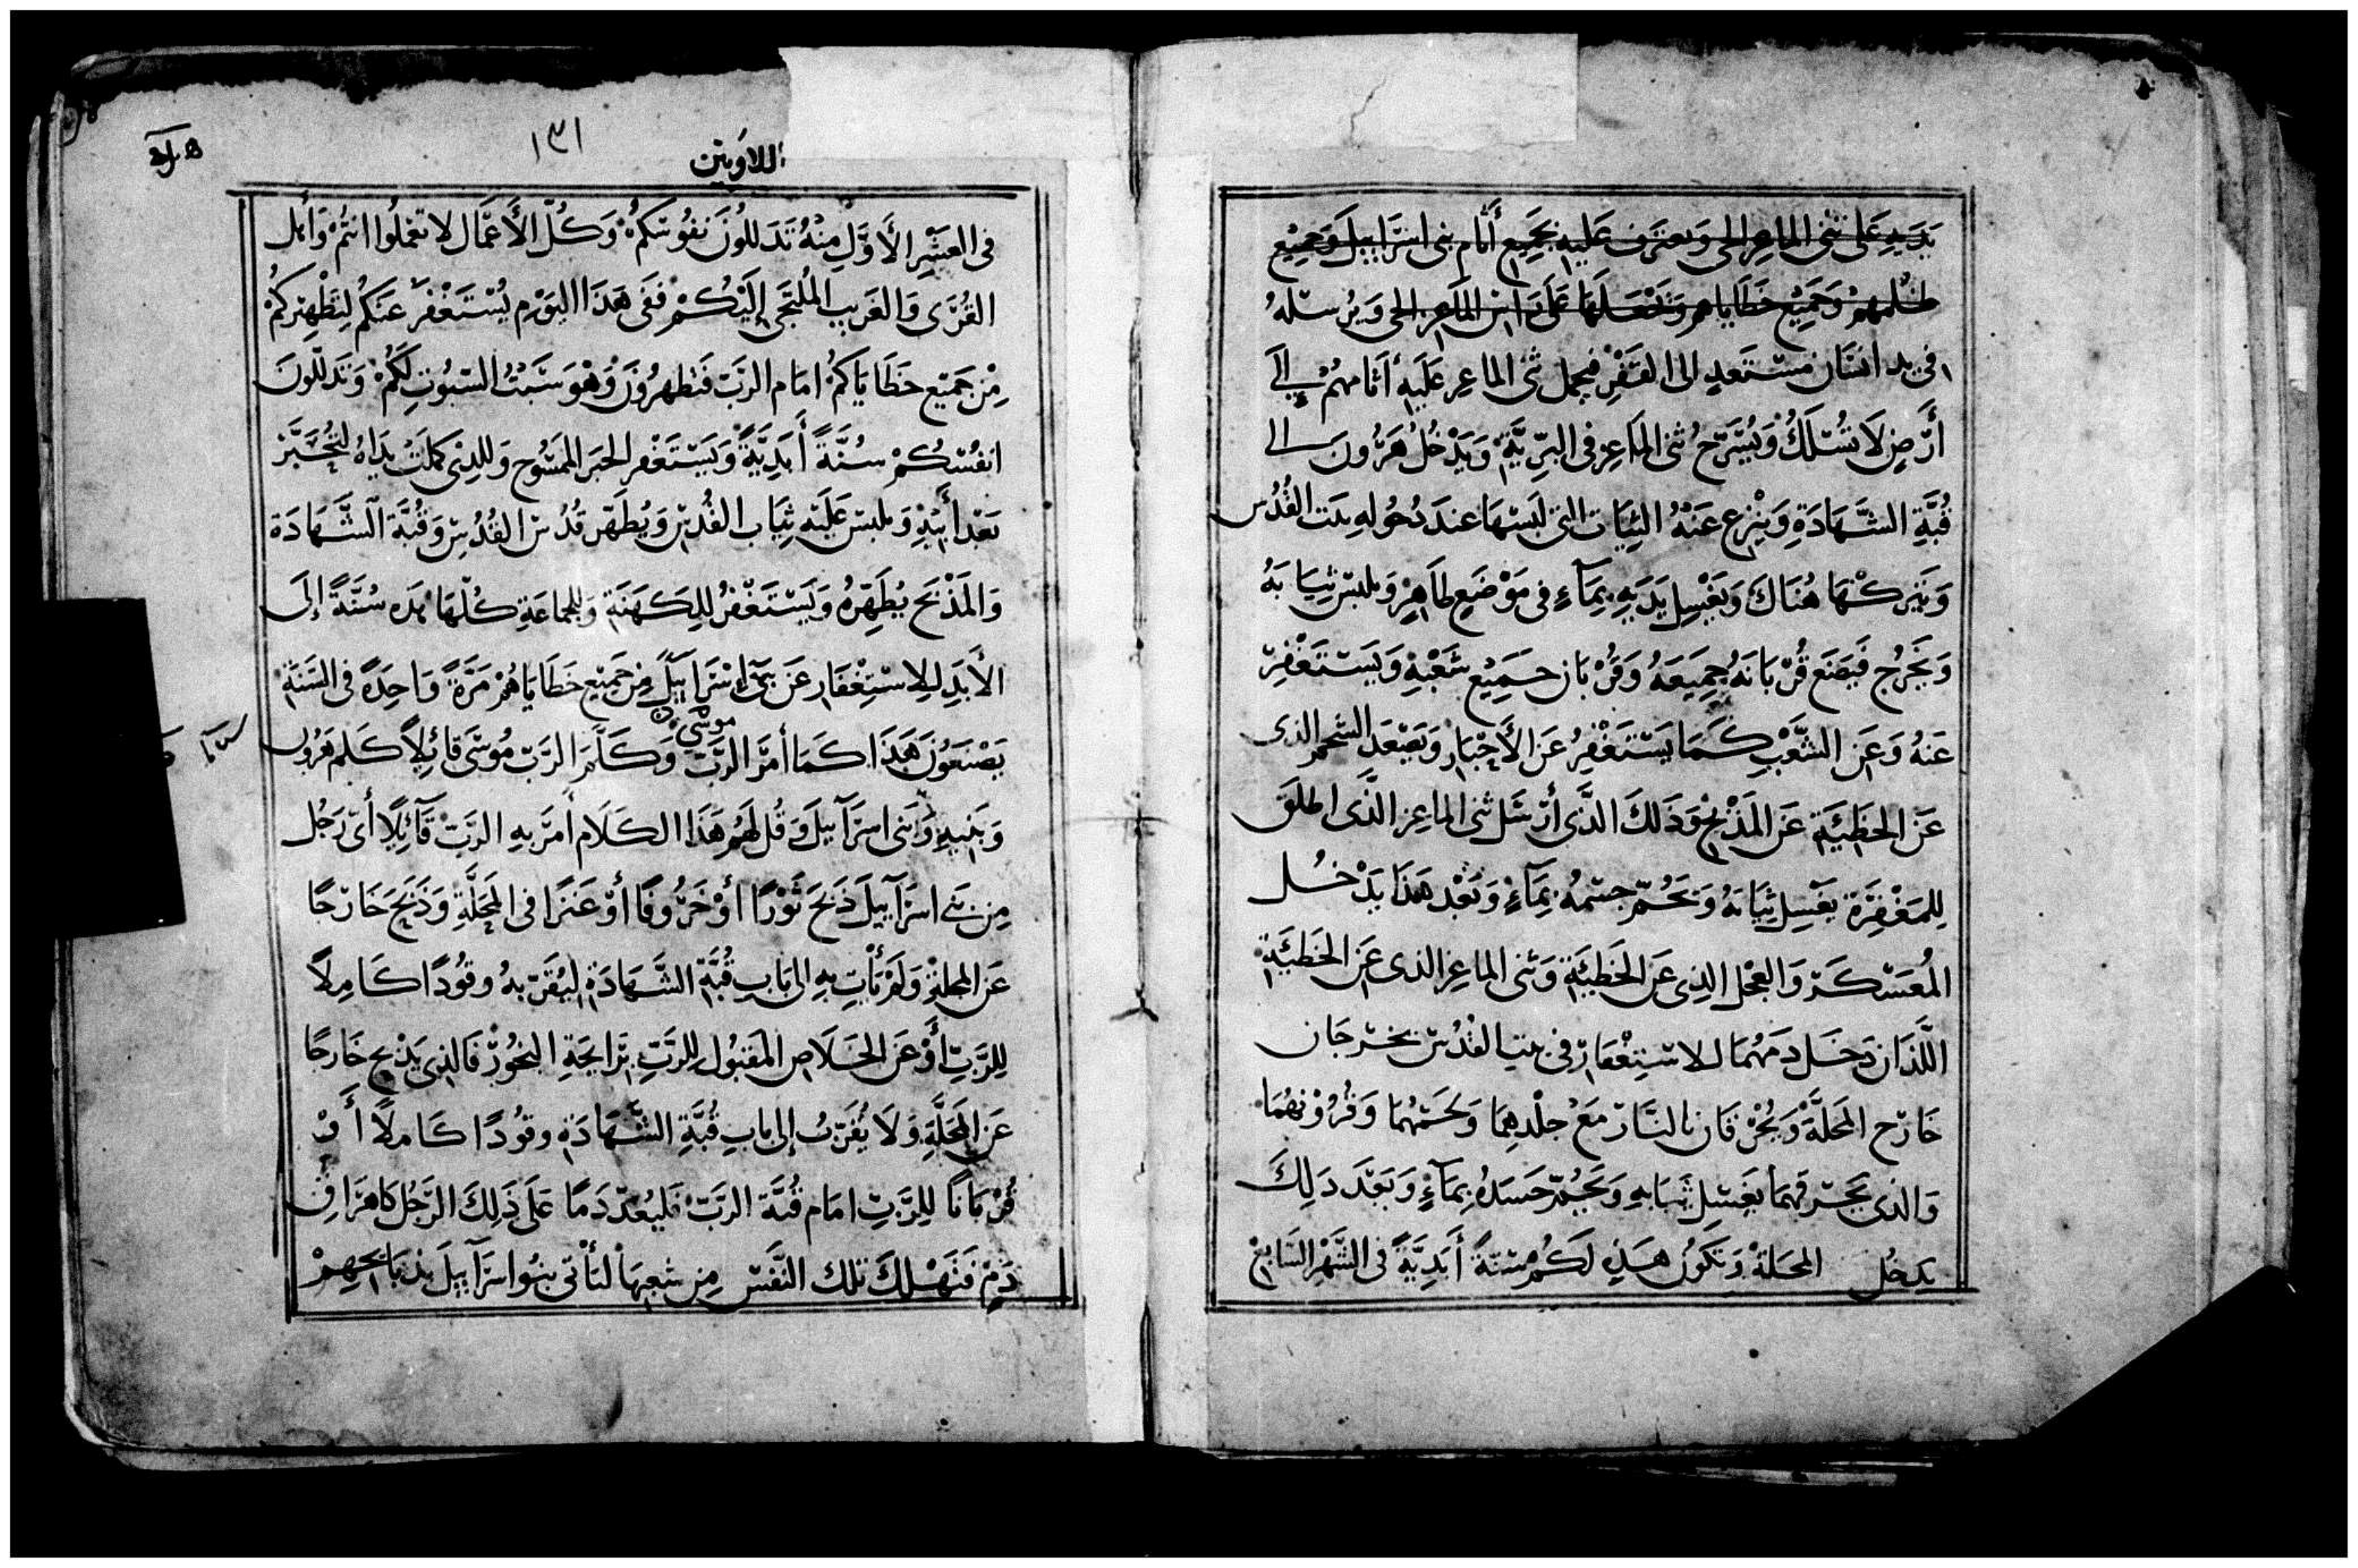 يَدَيهِ عَلى ثنى الماعِز الحى وَيعترف عَليهِ بجَميع أثام بنى اسرَاييل وَجميْع
ظلمهمْ وَجَميْع خطاياهم وَتجعَلهَا عَلى رَاس الماعز الحى وَيرُسلهُ
فى يد انسَان مسْتعدٍ الى القفْرِ فيحمل ثنى الماعِز عَليهِ أثامهُمْ إلى
أرْضٍ لَا تسُلَكُ وَيُسَرّحُ ثنى الماعِز فى البَرّيَّةِ وَيَدْخُلُ هَرُونَ الى
قُبَّةِ الشَّهَادَةِ وَينْزع عَنْهُ الثِيَاب التى لبَسْهَا عندَ دُخُولهِ بَيت القُدُس
وَيَتركْهَا هُنَاكَ وَيَغْسِل يَدَيهِ بِمَآءٍ فى مَوْضَعٍ طَاهِرٍ وَيلبسْ ثِيَابَهُ
وَيَخرُج فيَصْنَع قُرْبَانَهُ جميعَهُ وَقُرْبَان جَميْع شَعْبْهِ وَيَسْتغفِرْ
عَنهُ وَعَنِ الشَّعْبِ كَمَا يَسْتَغْفِرُ عَنِ الأَحْبَارِ وَيَصْعَد الشحمر الذى
عَن الخطِيَّةِ عَن المَذْبح وَذَلكَ الذَّى أرْسَل ثنى الماعِز الذَّى اطلقَ
لِلمَغْفِرَةِ يَغْسِل ثِيَابَهُ وَيَحُمّ جسْمهُ بِمَآءٍ وَبَعْد هَذَا يَدْخُل
المُعَسْكَرْ وَالعِجْل الذِى عَن الخَطيَّةِ وَثنى الماعِز الذى عَن الخَطيَّةِ
اللَّذَان دَخَل دَمَهُمَا للاسْتِغْفَارْ فى بيت القُدُسْ يخرجَان
خَارج المحَلَّةْ وَيُحْرَقان بالنّارْ مَعْ جلْدِهِمَا وَلحمَهُمَا وَفُرُوْنهُمَا
وَالذى يحَرقهمَا يَغسِل ثيَابهِ وَيَحُمّ جَسَدهُ بِمَآءٍ وَبَعْدَ ذَلِكَ
يَدخُل المحَلة وَتكون هَذِهِ لَكُم سُنّةً أبَدِيَّةً فى الشّهْر السّابعْ
اللاوَيين
١٣١
فى العَشِر الأَوّلِ مِنْهُ تَذَللوُنَ نفوُسَكمُْ وَكُلّ الأَعْمَال لا تعْملُوا انتُمْ وَأهل
القُرَى وَالغَريب المُلتجَى إلَيْكُمْ ففَى هَذَا اليَوْم يُسْتَغْفَرْ عَنكمُ لِتطْهِيركُمْ
مِنْ جَمَيْع خَطَايَاكمُْ امَام الرَبّ فتطهرُونَ وَهْوَ سَبْتُ السّبُوتِ لَكمُْ وَتذَلّلونَ
انفُسْكُمْ سُنَّةً أَبَدِيَّةً وَيَسْتَغفر الحَبَر الممَسُوح وَللذِى كمَلَتْ يَدَاهُ ليَُحَبَّرْ
بَعْد أبيْهِ وَيلبسْ عَليْهِ ثِيَاب القُدسْ وَيُطَهّر قدُسْ القُدُسْ وَقُبَّةَ الشَّهَادَة
وَالمَذْبَح يُطَهِّرهُ وَيَسْتَغْفرُ للِكَهَنَةِ وَللجمَاعَةِ كُلّهَا هذه سُنَّةً إلَى
الأَبَدِ للِاسْتِغْفَار عَن بَنى اسْرَايِيلَ مِنْ جَميْع خَطَايَاهُمْ مَرَّةً وَاحِدَةً فى السّنَةِ
موسَى
يَصْنعَوُنَ هَكذَا كمَا أمَرَ الرَبّ وَكَلّمَ الرَبّ مُوسَى قائِلاً كَلم هَرُون
وَبَنيهِ وَبَنى اسرَآييلَ وَقُل لهَمُْ هَذَا الكَلَام أمَرَ بهِ الرَبّ قَآئِلًا أىّ رَجُل
مِن بَنى اسرَآييلَ ذَبَحَ ثَوْرًا أوْ خَرُوفًا أوْ عَنزًا فى المَحَلَّةِ وَذَبَحَ خَارجًا
عَن المحلةِ وَلَمْ يَأتِ بهِ الى بَابِ قُبَّةِ الشَّهَادَةِ ليُقَرّبهُ وقوُدًا كَامِلاً
لِلرَّبِّ أوْ عَن الخَلَاصِ المقبُول لِلرَّبّ برَايحَةِ البَخُوْر فَالذِى يَذْبح خَارجًا
عَن المَحَلَّةِ وَلَا يُقَرّبُ إلى بابِ قُبَّةِ الشَّهَادَةِ وقوُدًا كَامِلًا أَوْ
قُرْبَانًا لِلرَّبِّ امَام قُبَّة الرَبّ فَليُعَدّ دَمًا عَلَى ذَلِكَ الرَّجُل كَاهرَاقِ
دَمٍْ فَتَهْلكَ تلك النَّفَسْ مِن شَعِبهَا لتأتى بنوُا اسرَآييلَ بذبَائحهِمْ